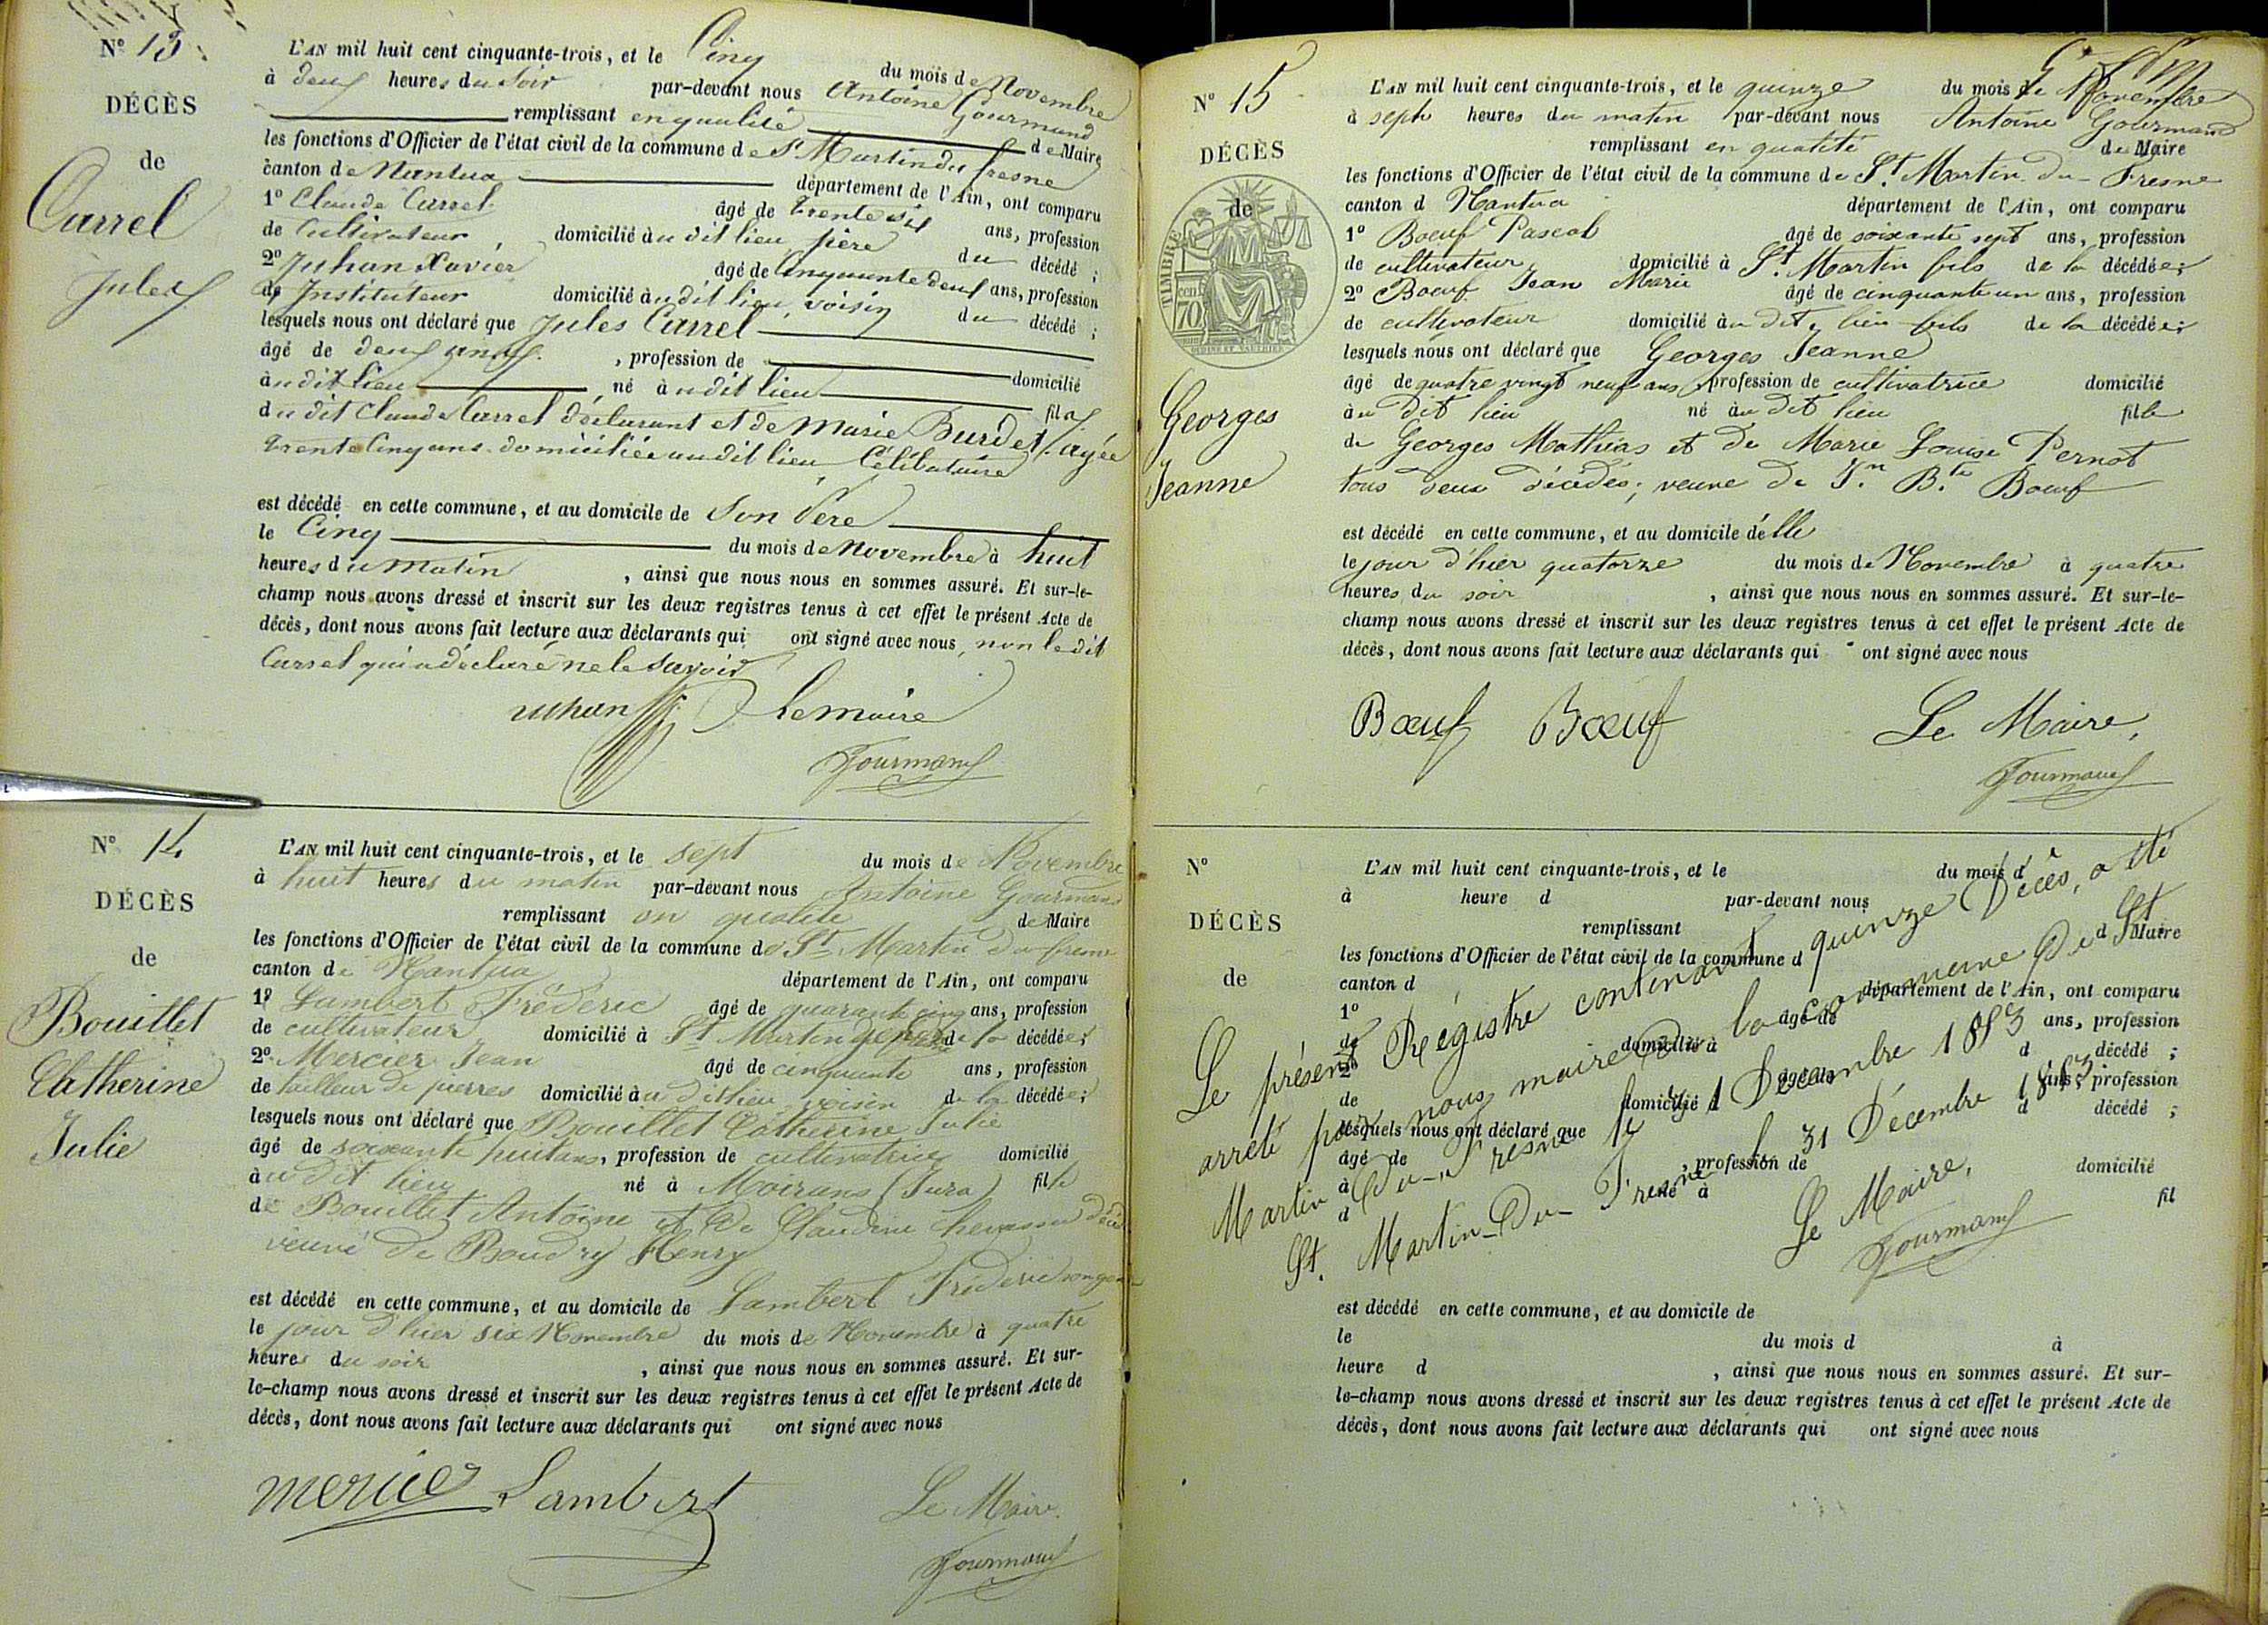 N° 13.
DÉCÈS
de
Carrel
Jules
L'AN mil huit cent cinquante-trois, et le Cinq du mois de Novembre
à deux heures du Soir par-devant nous Antoine Gourmand
remplissant en qualité de Maire
les fonctions d'Officier de l'état civil de la commune de St Martin du fresne
canton de Nantua département de l'Ain, ont comparu
1° Claude Carrel âgé de trente six ans, profession
de Cultivateur domicilié au dit lieu père du décédé ;
2° Juhan Xavier âgé de Cinquante deux ans, profession
de Instituteur domicilié au dit lieu, voisin du décédé ;
lesquels nous ont déclaré que Jules Carrel
âgé de deux ans , profession de domicilié
au dit lieu , né au dit lieu fils
du dit Claude Carrel déclarant et de Marie Burdet, agée
trente Cinq ans domiciliée au dit lieu Célibataire
est décédé en cette commune, et au domicile de Son Père
le Cinq du mois de Novembre à huit
heures du matin , ainsi que nous nous en sommes assuré. Et sur-le-
champ nous avons dressé et inscrit sur les deux registres tenus à cet effet le présent Acte de
décès, dont nous avons fait lecture aux déclarants qui ont signé avec nous, non le dit
Carrel qui a déclaré ne le savoir
Juhan Le maire
Gourmand
N° 14
DÉCÈS
de
Bouillet
Catherine
Julie
L'AN mil huit cent cinquante-trois, et le sept du mois de Novembre
à huit heures du matin par-devant nous Antoine Gourmand
remplissant en qualité de Maire
les fonctions d'Officier de l'état civil de la commune de St Martin du fresne
canton de Nantua département de l'Ain, ont comparu
1° Lambert Fréderic âgé de quarante cinq ans, profession
de cultivateur domicilié à St Martin gendre de la décédée ;
2° Mercier Jean âgé de cinquante ans, profession
de tailleur de pierres domicilié au dit lieu voisin de la décédée ;
lesquels nous ont déclaré que Bouillet Catherine Julie
âgé de soixante huit ans, profession de cultivatrice domicilié
au dit lieu né à Moirans (Jura) fille
de Bouillet Antoine et de Claudine
veuve de Baudry Henry
est décédé en cette commune, et au domicile de Lambert Fréderic son
le jour d'hier six Novembre du mois de Novembre à quatre
heures du soir , ainsi que nous nous en sommes assuré. Et sur-
le-champ nous avons dressé et inscrit sur les deux registres tenus à cet effet le présent Acte de
décès, dont nous avons fait lecture aux déclarants qui ont signé avec nous
mercier Lambert Le Maire
Gourmand
N° 15
DÉCÈS
de
TIMBRE
70 cen.
Georges
Jeanne
L'AN mil huit cent cinquante-trois, et le quinze du mois de Novembre
à sept heures du matin par-devant nous Antoine Gourmand
remplissant en qualité de Maire
les fonctions d'Officier de l'état civil de la commune de St. Martin-du-Fresne
canton d Nantua département de l'Ain, ont comparu
1° Boeuf Pascal âgé de soixante sept ans, profession
de cultivateur domicilié à St. Martin fils de la décédée ;
2° Boeuf Jean Marie âgé de cinquante un ans, profession
de cultivateur domicilié au dit lieu fils de la décédée ;
lesquels nous ont déclaré que Georges Jeanne
âgé de quatre vingt neuf ans, profession de cultivatrice domicilié
au dit lieu né au dit lieu fille
de Georges Mathias et de Marie Louise Pernot
tous deux décédés ; veuve de Jn. Bte Boeuf
est décédé en cette commune, et au domicile d'elle
le jour d'hier quatorze du mois de Novembre à quatre
heures du soir , ainsi que nous nous en sommes assuré. Et sur-le-
champ nous avons dressé et inscrit sur les deux registres tenus à cet effet le présent Acte de
décès, dont nous avons fait lecture aux déclarants qui ont signé avec nous
Bœuf Bœuf Le Maire,
Gourmand
N°
DÉCÈS
de
L'AN mil huit cent cinquante-trois, et le du mois d
à heure d par-devant nous
remplissant d Maire
les fonctions d'Officier de l'état civil de la commune d
canton d département de l'Ain, ont comparu
1° âgé de ans, profession
de domicilié à d décédé ;
2° âgé de ans, profession
de domicilié à d décédé ;
lesquels nous ont déclaré que
âgé de , profession de domicilié
à né à fil
d
Le présent Registre contenant quinze Décès, a été
arrêté par nous maire de la commune de St
Martin-du-Fresne le 31 Décembre 1883
St. Martin-du-Fresne le 31 Décembre 1883.
Le Maire,
Gourmand
est décédé en cette commune, et au domicile de
le du mois d à
heure d , ainsi que nous nous en sommes assuré. Et sur-
le-champ nous avons dressé et inscrit sur les deux registres tenus à cet effet le présent Acte de
décès, dont nous avons fait lecture aux déclarants qui ont signé avec nous